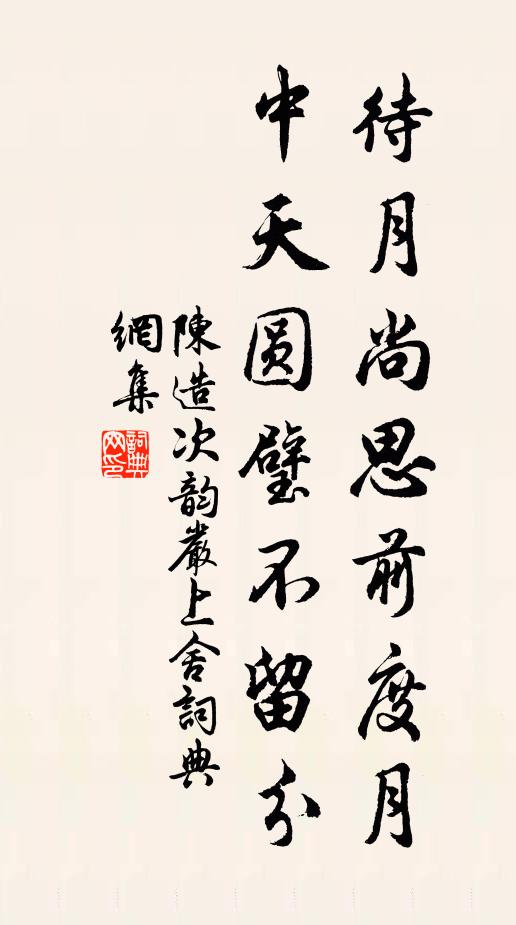 待月尚思前度月
中天圆璧不留分
陳造次韵嚴上舍詞典
網集
詞典網印